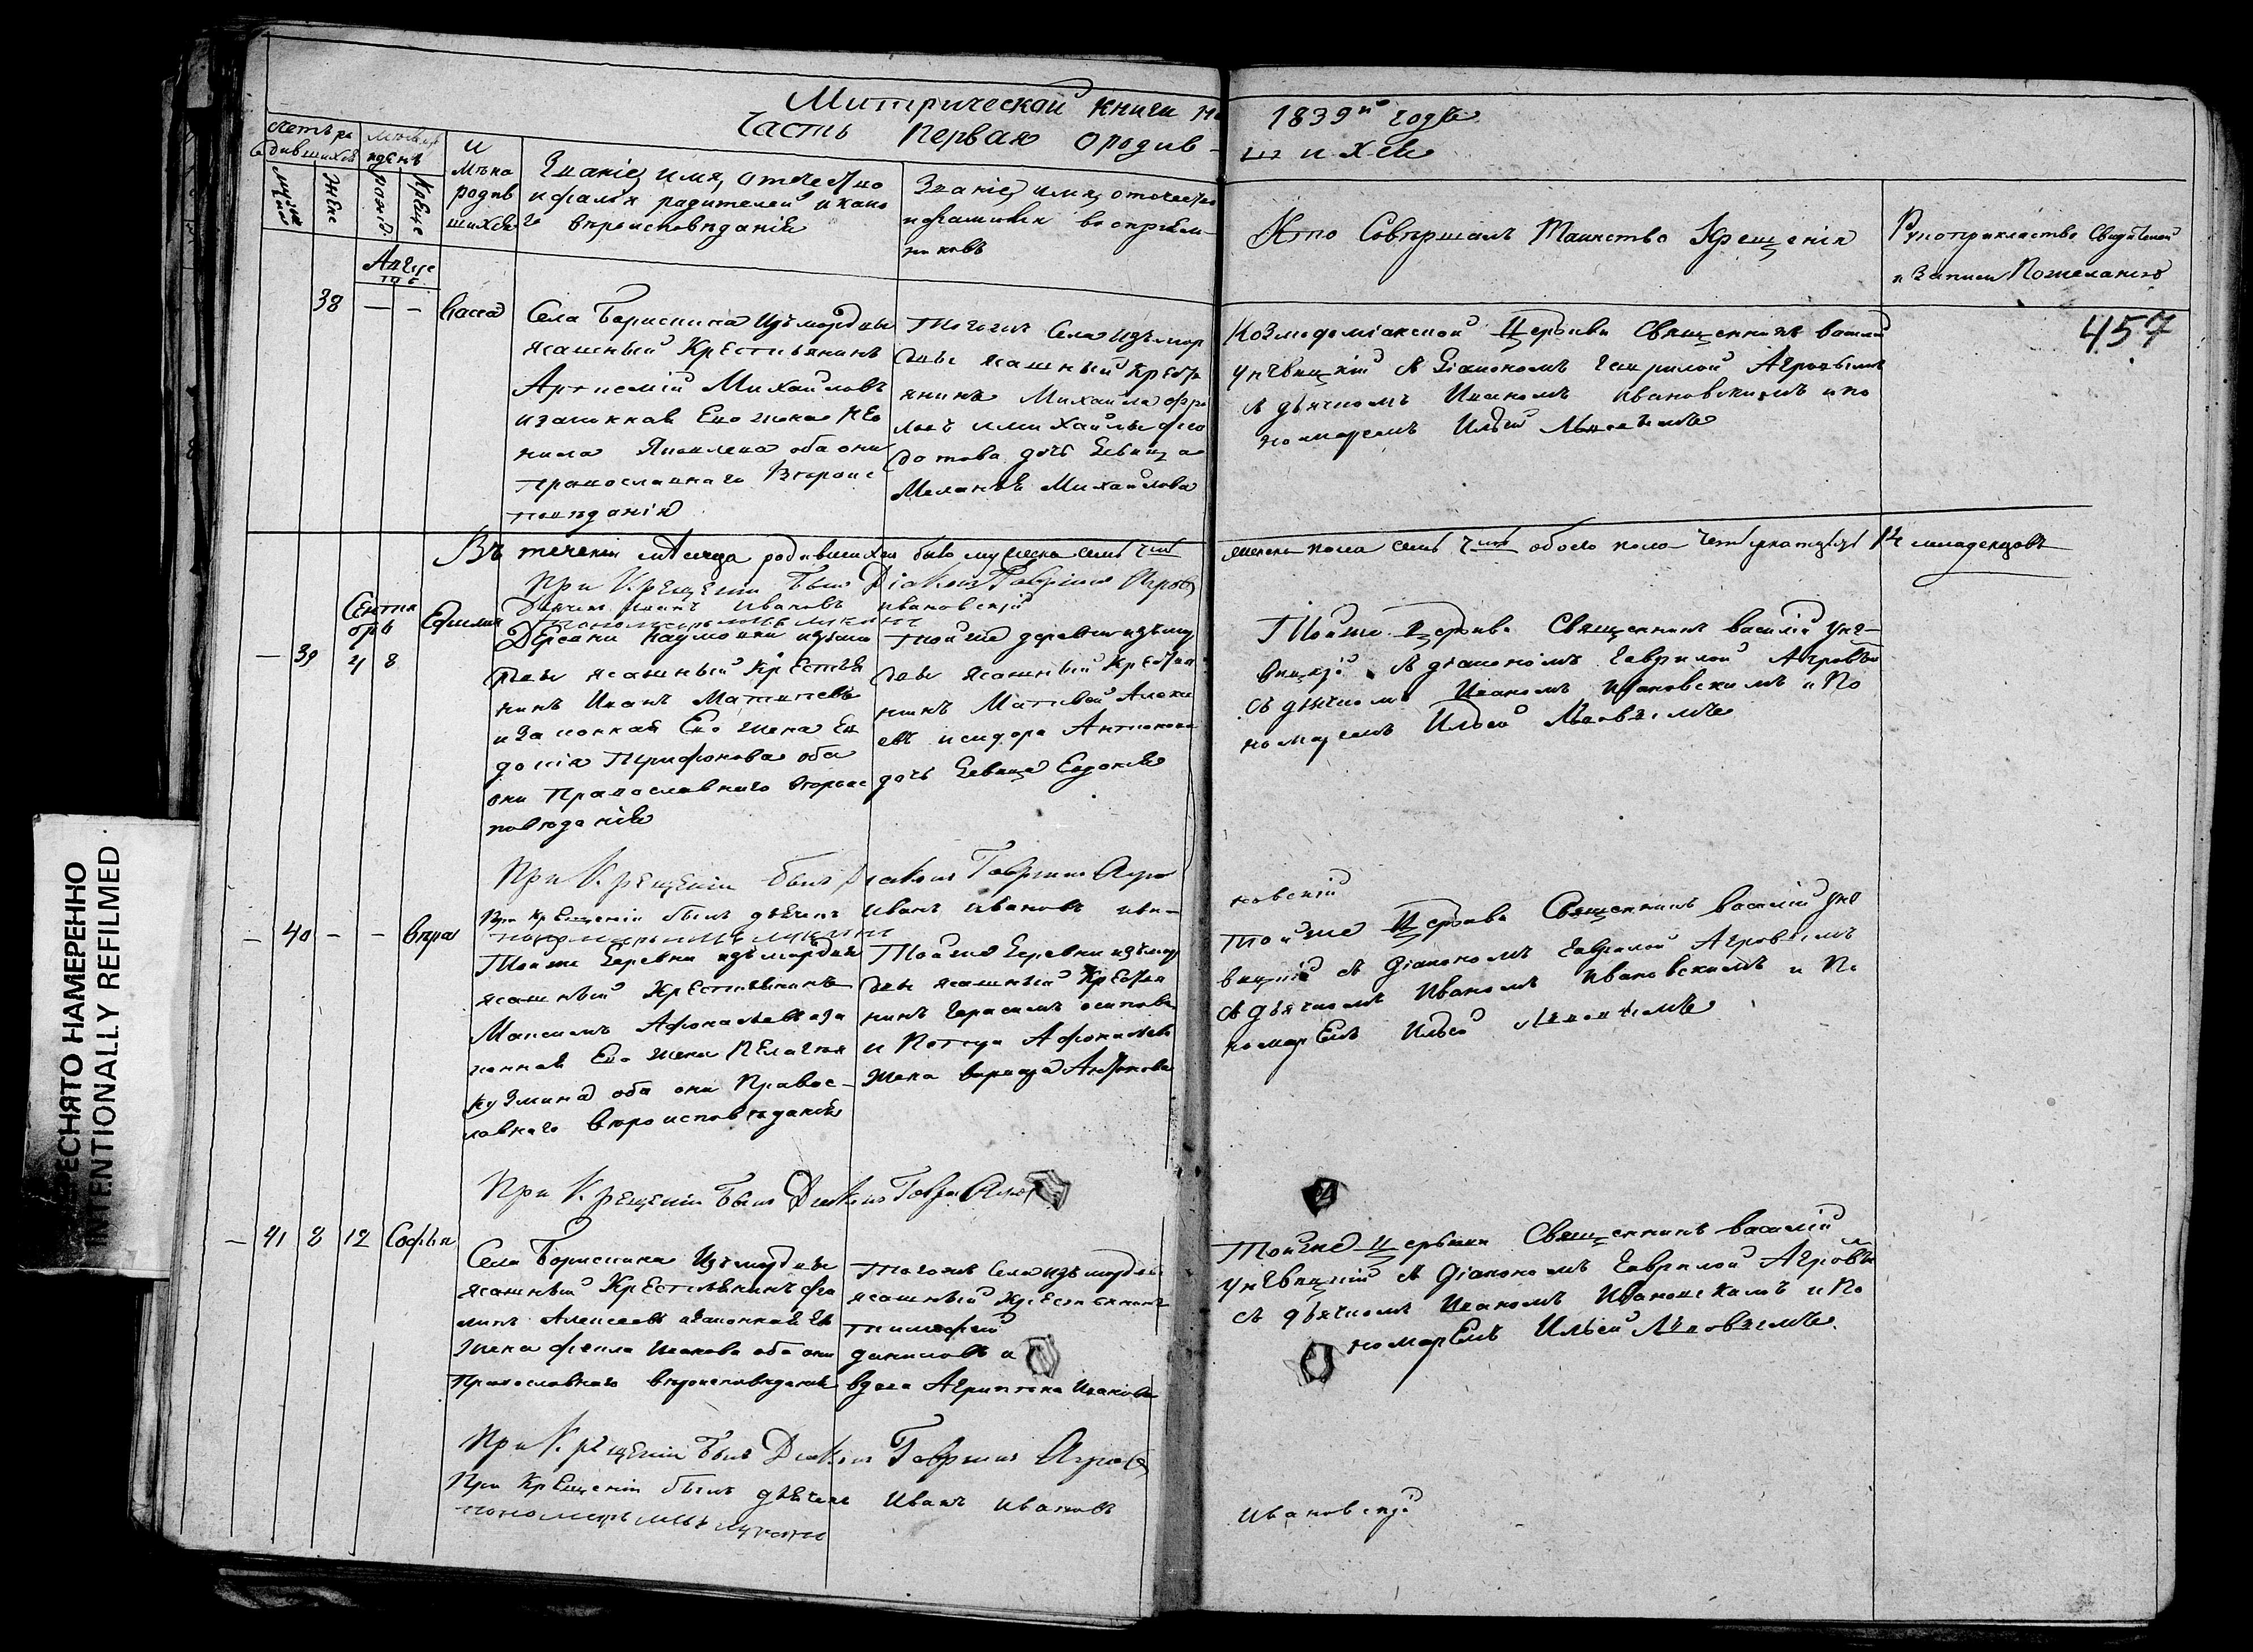 Митрической книги на 1839й годъ
Часть первая о родив-шихся
Счетъ родившихся
Мѣсяцъ и день
мужс
женс
рожд.
Креще
Имѣна родившихся
Званіе, имя, отечество и фамил'я родителей и како го вѣроисповѣданія
Званіе, имя, отечество и фамилія воспріем никовъ
Кто Совѣршалъ Таинство Крещенія
Рукоприкладство Свидѣтелей и Записи Пожеланію
457
Авгус
38 — —
Васса
Села Борискина Изъ мордвы
ясашный Крестьянинъ
Артисмій Михайловъ
и законная Его жена Нео
нила Яковлева оба они
православнаго Вѣроис
повѣданія
Тогожъ Села изъ мор
двы ясашный крестья
янинъ Михаила Фро
ловъ и михайлы Фео
дотова дочь Девица
Маланья Михайлова
Козмодоміанской Церкви Священникъ Василій
Унгвицкій съ Діакономъ Гаврилой Агровымъ
съ дьячкомъ Иваномъ Ивановскимъ и по
номаремъ Ильей
Въ теченіи мѣсяца родившихся было мужеска семь
женска пола семь обоего пола четырнатцать 14 младенцовъ
При Крещеніи Былъ Діаконъ Гаврилъ Агровъ
Дьячекъ Иванъ Ивановъ Ивановскій
Сентя
брь
— 39 4 8
Ефимія
Деревни Наумовки изъ мо
рдвы ясашный Крестья
нинъ Иванъ Матвѣевъ
и Законная Его жена Ев
докія Трифонова оба
они Православнаго вѣроис
повѣданія
Тойже деревни изъ мор
двы ясашный Крестья
нинъ Матвей Алекс
евъ исидора Антонова
дочь Девица Евдокія
Тойже Церкви Священникъ Василій Унг-
вицкій съ діакономъ Гаврилой Агровымъ
съ дьячкомъ Иваномъ Ивановскимъ и По
номаремъ Ильей
При Крещеніи былъ Діаконъ Гаврилъ Агро
При Крещеніи былъ дьячекъ Иванъ Ивановъ Ива-
новскій
— 40 — —
Вѣра
Тойже Деревни изъ мордвы
ясашный Крестьянинъ
Максимъ Афонасьевъ и за
конная Его жена Пелагія
Кузмина оба они Правос-
лавнаго вѣроисповѣданія
Тойже Деревни изъ мор
двы ясашный Крестья
нинъ Герасимъ Осиповъ
и Афонасьева
жена Варвара Антонова
Тойже Церкви Священникъ Василій Унг
вицкій съ Діакономъ Гаврилой Агровымъ
съ дьячкомъ Иваномъ Ивановскимъ и По
номаремъ Ильей
При Крещеніи Былъ Діаконъ Гаврилъ
— 41 8 12
Софья
Села Борискина Изъ мордвы
ясашный Крестьянинъ
Алексеевъ и законная Его
жена Фекла Иванова оба они
Православнаго вѣроисповѣданія
Тогожъ Села изъ мордвы
ясашный Крестьянинъ
тимофей
даниловъ и
вдова Агрипена Иванова
Тойже Церкви Священникъ Василій
Унгвицкій съ Діакономъ Гаврилой Агровымъ
съ дьячкомъ Иваномъ Ивановскимъ и По
номаремъ Ильей
При Крещеніи Былъ Діаконъ Гаврилъ Агровъ
При Крещеніи былъ дьячекъ Иванъ Ивановъ
Ивановскій
РЕСНЯТО НАМЕРЕННО
INTENTIONALLY REFILMED